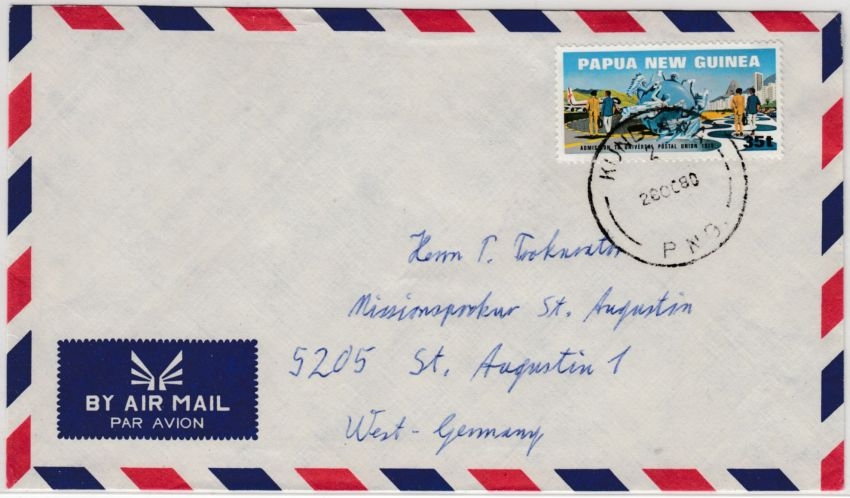 PAPUA NEW GUINEA
ADMISSION TO UNIVERSAL POSTAL UNION 1976
35t
2
28OC80
P.N.G.
Herrn P. Prokurator
Missionsprokur St. Augustin
5205 St. Augustin 1
West-Germany
BY AIR MAIL
PAR AVION